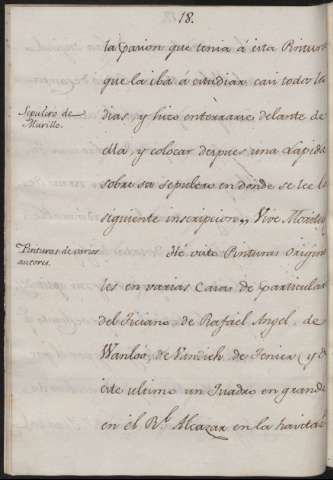 18.
ta pasion que tenia á esta Pintura
que la iba á estudiar casi todos los
Sepulcro de
Murillo.
dias, y hizo enterrarse delante de
ella, y colocar despues una Lapida
sobre su sepulcro en donde se lee la
siguiente inscripcion,, Vive Moriturus
Pinturas de varios
autores.
Hé visto Pinturas origina
les en varias Casas de particular
del Ticiano, de Rafael Angel, de
Wanloó, de Vandich, de Tenier, y de
este ultimo un Quadro en grande
en el Rl. Alcazar en la havita